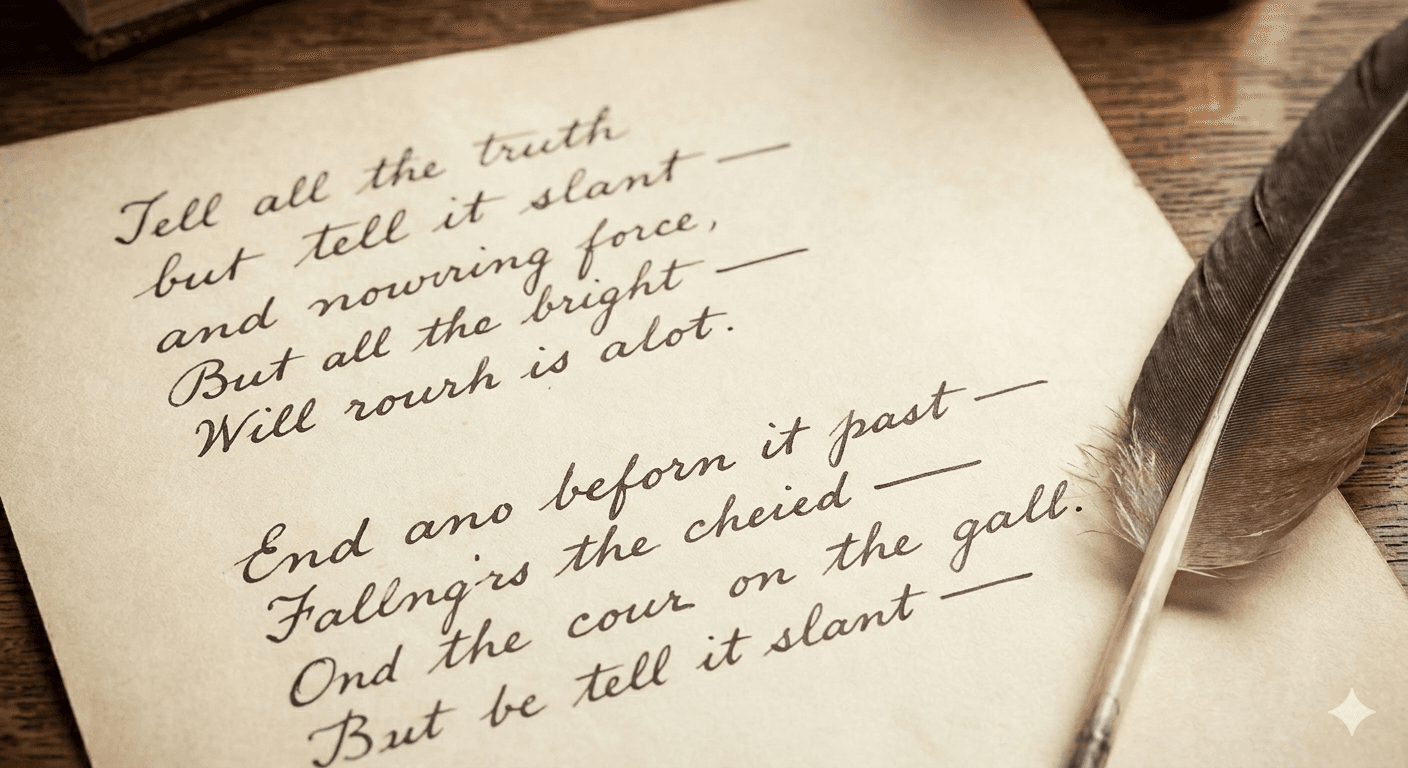 Tell all the truth
but tell it slant —
and nowring force,
But all the bright —
Will rourh is alot.
End ano beforn it past —
Fallng'rs the cheied —
Ond the cour on the gall.
But be tell it slant —